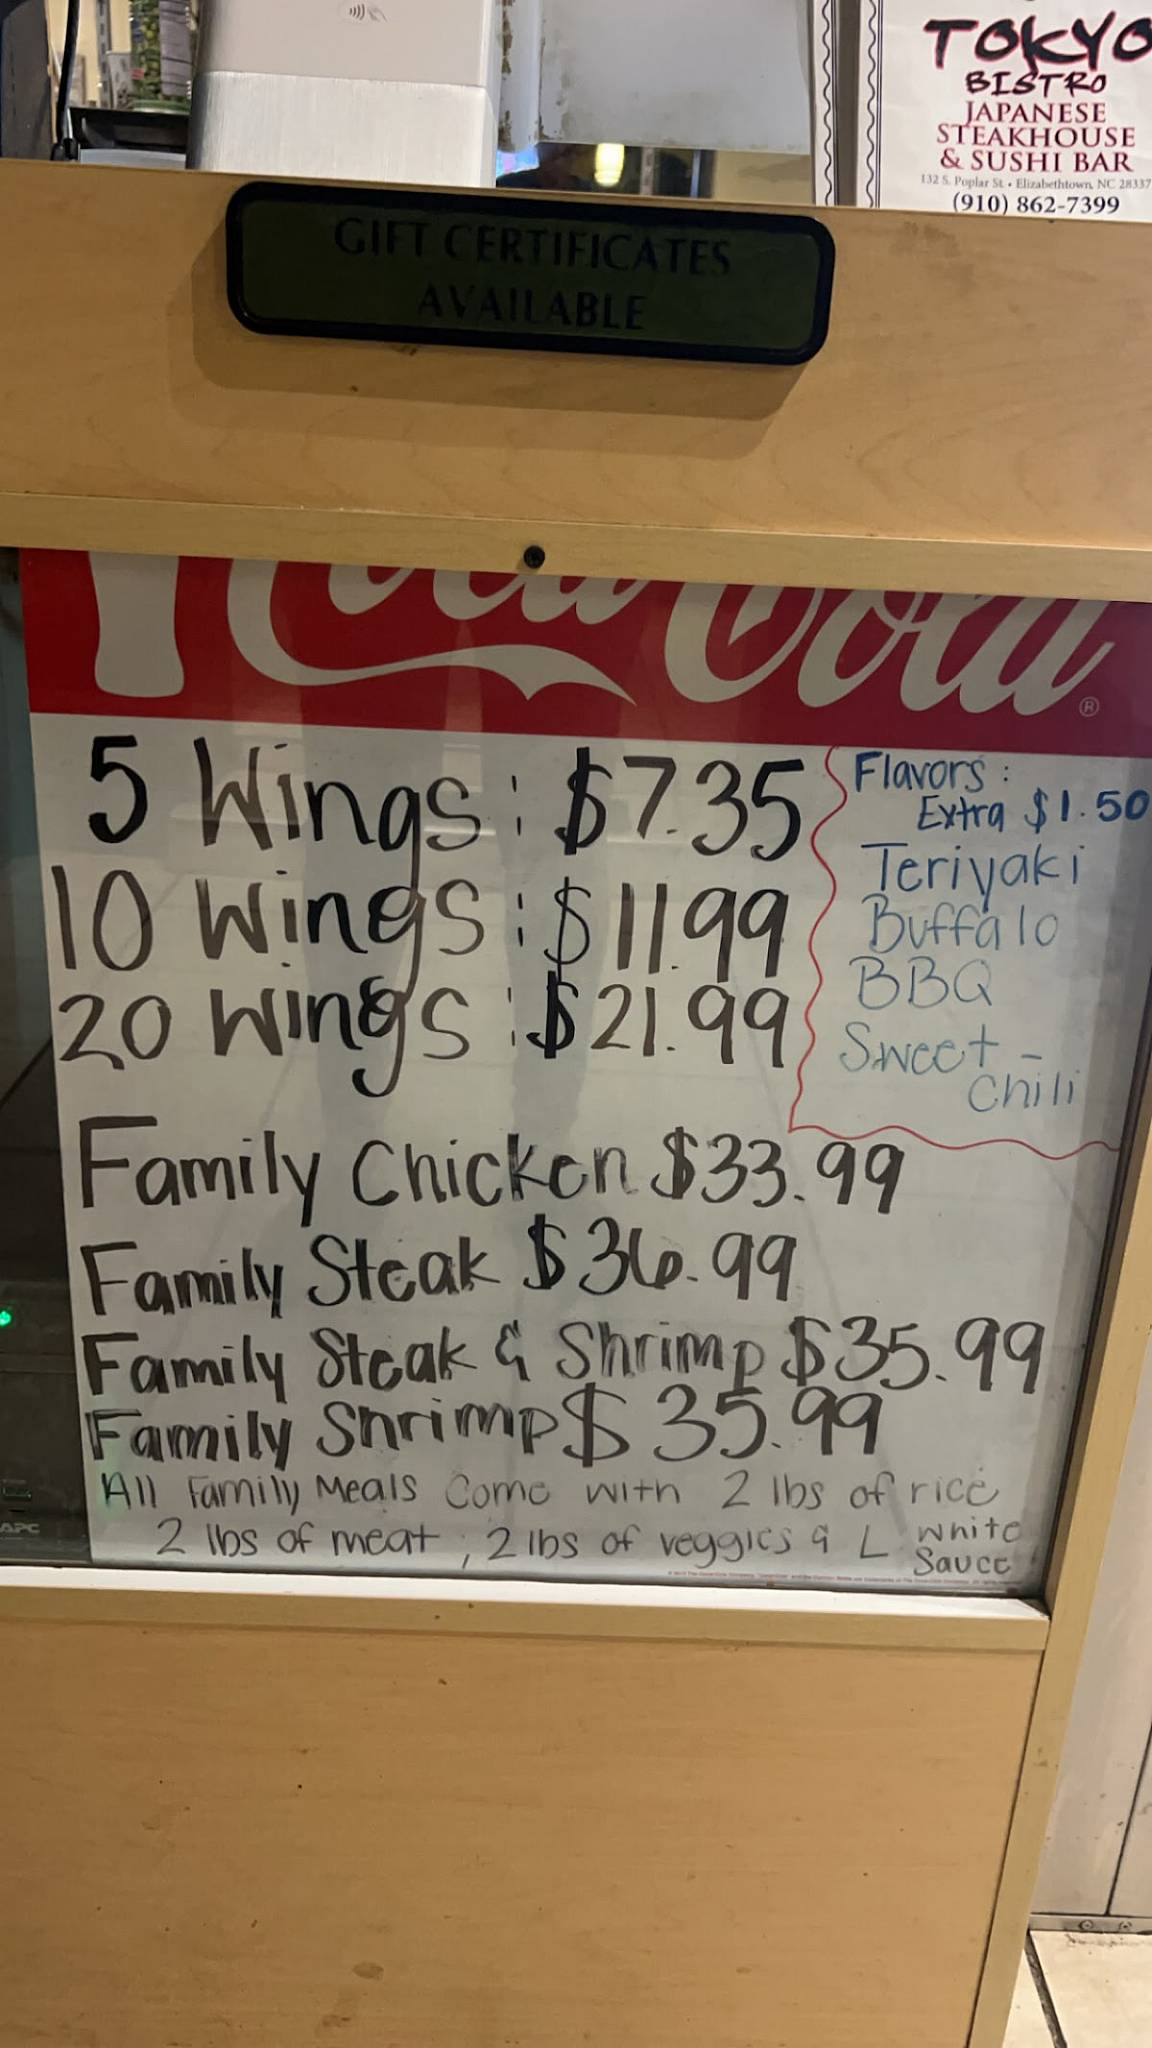 TOKYO
BISTRO
JAPANESE
STEAKHOUSE
& SUSHI BAR
132 S. Poplar St. • Elizabethtown, NC 28337
(910) 862-7399
GIFT CERTIFICATES
AVAILABLE
Coca-Cola®
5 Wings: $7.35
10 Wings: $11.99
20 Wings: $21.99
Flavors:
Extra $1.50
Teriyaki
Buffalo
BBQ
Sweet -
Chili
Family Chicken $33.99
Family Steak $36.99
Family Steak & Shrimp $35.99
Family Shrimp $35.99
All Family Meals Come with 2 lbs of rice
2 lbs of meat, 2 lbs of veggies & L White
Sauce
APC